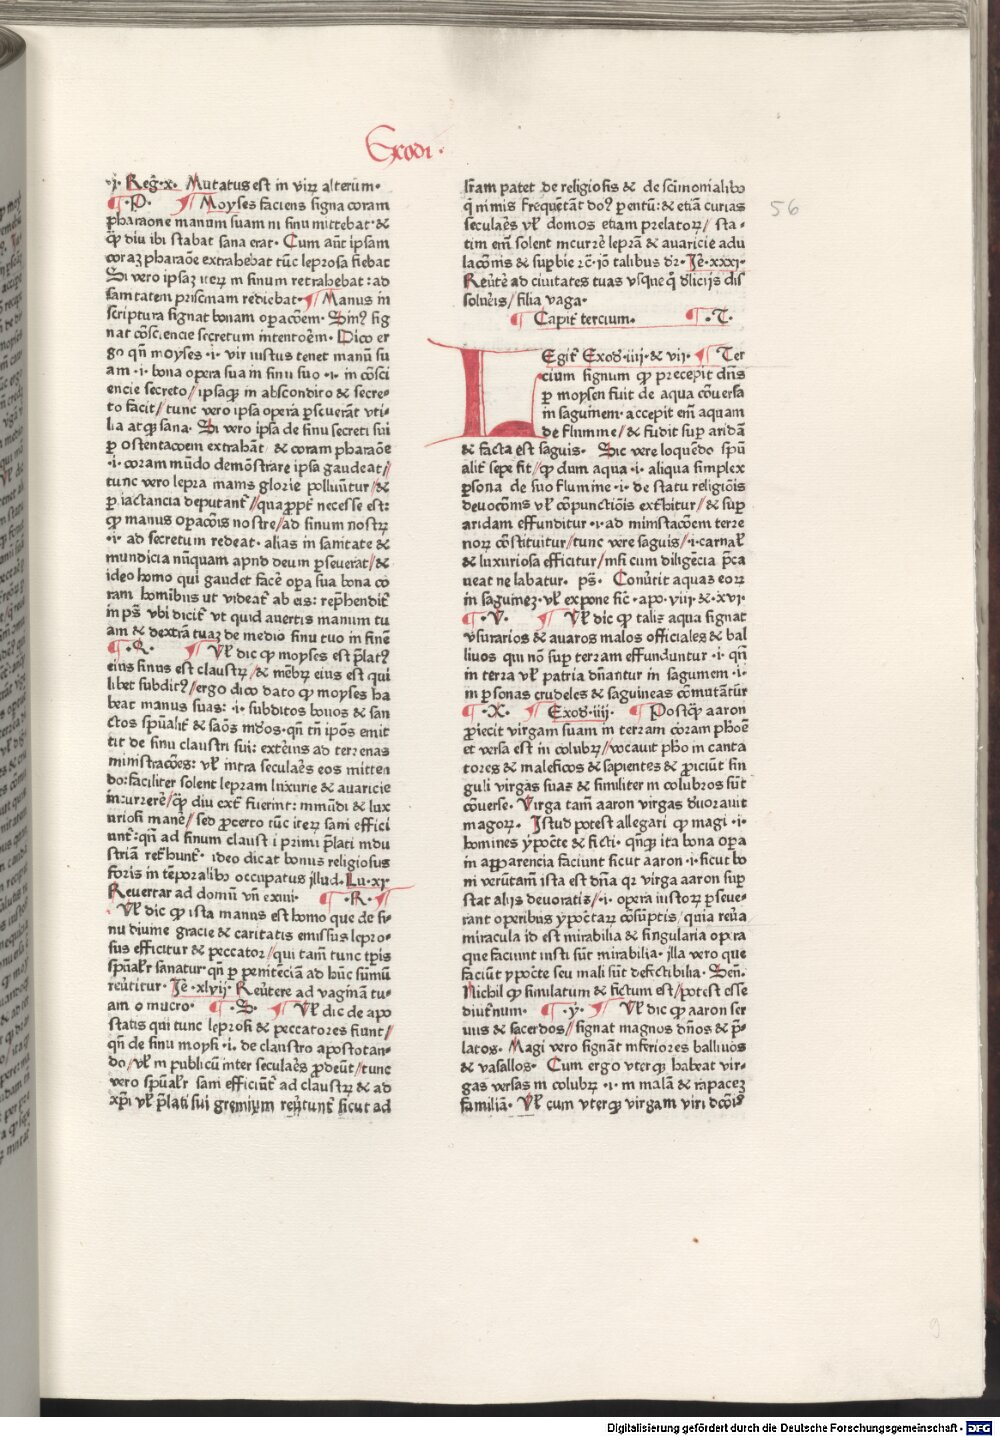 Exodi.
.i. Reg̃.x. Mutatus est in virꝝ alterum.
¶ .P. ¶ Moyses faciens signa coram
pharaone manum suam in sinu mittebat. &
qᷓ diu ibi stabat sana erat. Cum aūt ipsam
coraʒ pharaōe extrahebat tūc leprosa fiebat
Si vero ipsaʒ iterʒ in sinum retrahebat: ad
sanitatem pristinam rediebat. ¶ Manus in
scriptura signat bonam operacōem. Sinꝰ sig
nat cōsciencie secretum intentoēm. Dico er
go qn̄ moyses .i. vir iustus tenet manū su
am .i. bona opera sua in sinu suo .i. in cōsci
encie secreto/ ipsaqꝫ in abscondito & secre-
to facit/ tunc vero ipsa opera ꝑseuerāt vti-
lia atqꝫ sana. Si vero ipsa de sinu secreti sui
ꝑ ostentacoem extrahāt & coram pharaōe
.i. coram mūdo demōstrare ipsa gaudeat//
tunc vero lepra inanis glorie polluūtur/ &
ꝑ iactancia deputant̃/ quappt̃ necesse est:
qꝫ manus opacōis nostre/ ad sinum nostrꝝ
.i. ad secretum redeat. alias in sanitate &
mundicia nūnquam apud deum ꝑseuerat/ &
ideo homo qui gaudet facẽ opa sua bona co
ram hominibus ut videat̃ ab eis: rep̃hendit̃
in ps̃ vbi dicit̃ vt quid auertis manum tu
am & dextrā tuaʒ de medio sinu tuo in finē
¶ .Q. ¶ Vl̃ dic qꝫ moyses est p̃latꝰ
eius sinus est claustrꝝ/ & mēbrꝫ eius est qui
libet subditꝰ/ ergo dico dato qꝫ moyses ha
beat manus suas: .i. subditos bonos & san
ctos spūalit̃ & saōs mdos. qn̄ tn̄ ip̄os emit
tit de sinu claustri sui: extēius ad terrenas
ministracōes: vl̃ intra seculaẽs eos mitten
do: faciliter solent lepram luxurie & auaricie
incurrere/ qᷓ diu ext̃ fuerint: inmūdi & lux
uriosi manẽ/ sed ꝓcerto tūc iterꝫ sani effici
unt̃: qn̄ ad sinum claust̃ i primi p̃lati indu
striā ret̃hunt̃. ideo dicat bonus religiosus
foris in tēporalibꝰ occupatus jllud. Lu.xi.
Reuertar ad domū vn̄ exiui. ¶ .R. ¶
Vl̃ dic qꝫ ista manus est homo que de si-
nu diuine gracie & caritatis emissus lepro-
sus efficitur & peccator/ qui tam̄ tunc tp̄is
spūal̃r sanatur qn̄ ꝑ penitēciā ad hūc sinum
reūtitur. Jẽ .xlvij. Reūtere ad vaginā tu-
am o mucro. ¶ .S. ¶ Vl̃ dic de apo
statis qui tunc leprosi & peccatores fiunt/
qn̄ de sinu moysi .i. de claustro apostotan-
do/ vl̃ in publicū inter seculaẽs ꝓdeūt/ tunc
vero spūal̃r sani efficiūt̃ ad claustrꝝ & ad
xp̄i vl̃ p̃lati sui gremium reūtunt̃ sicut ad
stram patet de religiosis & de scimonialibꝰ
q̃ nimis frequētāt doꝰ ꝑentū: & etiā curias
seculaẽs vl̃ domos etiam prelatorꝝ/ sta-
tim em̄ solent incurrẽ leprā & auaricie adu
lacōnis & supbie ⁊c̃. iō talibus dr̄. Je.xxxi.
Reūtẽ ad ciuitates tuas vsque q̃ dlicijs dis
solūeis/ filia vaga.
¶ Capit̃ tercium. ¶ .T.
LEgit̃ Exod̃.iiij. & vij. ¶ Ter
cium signum qꝫ precepit dn̄s
ꝑ moysen fuit de aqua cōuersa
in saguinem. accepit em̄ aquam
de flumine/ & fudit sup aridā
& facta est saguis. Sic vere loquēdo spū
alit̃ sepe fit/ qꝫ dum aqua .i. aliqua simplex
ꝑsona de suo flumine .i. de statu religiōis
deuocōnis vl̃ cōpunctiōis ext̃hitur/ & sup
aridam effunditur .i. ad ministacōem terre
norꝝ cōstituitur/ tunc vere saguis/ .i. carnal̃
& luxuriosa efficitur/ nisi cum diligēcia p̃ca
ueat ne labatur. ps̃. Conūtit aquas eorꝝ
in saguineʒ. vl̃ expone sic̃. apo.viii & .xvi.
¶ .V. ¶ Vl̃ dic qꝫ talis aqua signat
vsurarios & auaros malos officiales & bal
liuos qui nō sup terram effunduntur .i. qn̄
in terra vl̃ patria dn̄antur in saguinem .i.
in ꝑsonas crudeles & saguineas cōmutātur
¶ .X. ¶ Exod̃.iiij. ¶ Postqᷓ aaron
ꝓiecit virgam suam in terram coram pħoē
et versa est in colubrꝝ/ vocauit pħo incanta
tores & maleficos & sapientes & ꝓiciūt sin
guli virgas suas & similiter in colubros sūt
cōuerse. Virga tam̄ aaron virgas d̃uorauit
magorꝝ. Jstud potest allegari qꝫ magi .i.
homines ypoc̃te & ficti. qn̄qꝫ ita bona opa
in apparencia faciunt sicut aaron .i. sicut bo
ni verūtam̄ ista est dn̄a qꝛ virga aaron sup
stat alijs deuoratis/ .i. opera iustorꝝ ꝑseue-
rant operibus ypoc̃tarꝫ cōsūptis/ quia reūa
miracula id est mirabilia & singularia opera
que faciunt iusti sūt mirabilia. jlla vero que
faciūt ypoc̃te seu mali sūt defictibilia. Sen̄.
Nichil qꝫ similatum & fictum est/ potest esse
diut̃num. ¶ .y. ¶ Vl̃ dic qꝫ aaron ser
uus & sacerdos/ signat magnos dn̄os & p̃-
latos. Magi vero signāt inferiores balliuos
& vasallos. Cum ergo vterqꝫ habeat vir-
gas versas in colubrꝝ .i. in malā & rapaceʒ
familiā. Vl̃ cum vterqꝫ virgam viri dcōis̃
56
9
Digitalisierung gefördert durch die Deutsche Forschungsgemeinschaft - DFG